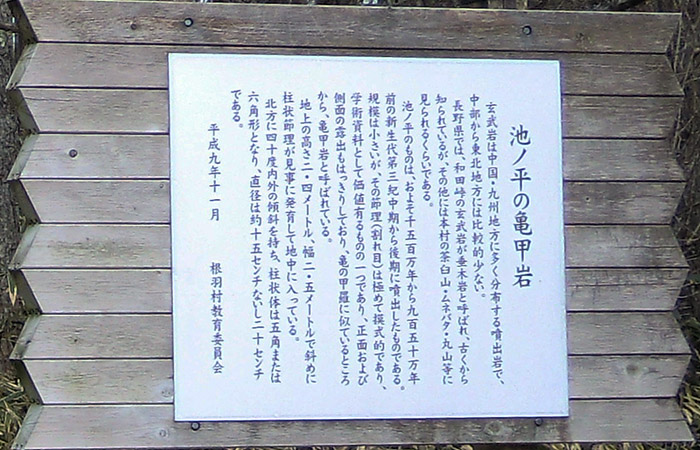 池ノ平の亀甲岩
玄武岩は中国・九州地方に多く分布する噴出岩で、
中部から東北地方には比較的少ない。
長野県では、和田峠の玄武岩が垂木岩と呼ばれ、古くから
知られているが、その他には本村の茶臼山・ムネバタ・丸山等に
見られるくらいである。
池ノ平のものは、およそ千五百万年から九百五十万年
前の新生代第三紀中期から後期に噴出したものである。
規模は小さいが、その節理(割れ目)は極めて模式的であり、
学術資料として価値有るものの一つであり、正面および
側面の露出もはっきりしており、亀の甲羅に似ているところ
から、亀甲岩と呼ばれている。
地上の高さ二・四メートル、幅二・五メートルで斜めに
柱状節理が見事に発育して地中に入っている。
北方に四十度内外の傾斜を持ち、柱状体は五角または
六角形となり、直径は約十五センチないし二十センチ
である。
平成九年十一月
根羽村教育委員会